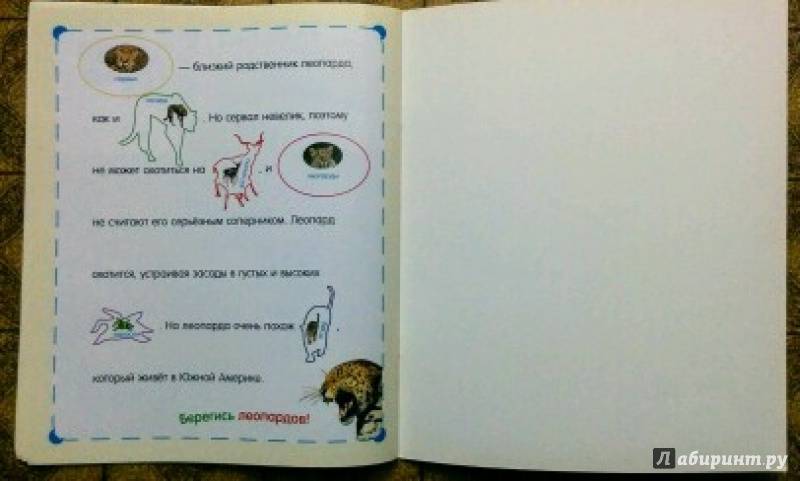 — близкий родственник леопарда,
как и . Но сервал невелик, поэтому
не может охотиться на , и
леопарды
не считают его серьёзным соперником. Леопард
охотится, устраивая засады в густых и высоких
. На леопарда очень похож ,
который живёт в Южной Америке.
Берегись леопардов!
Лабиринт.ру